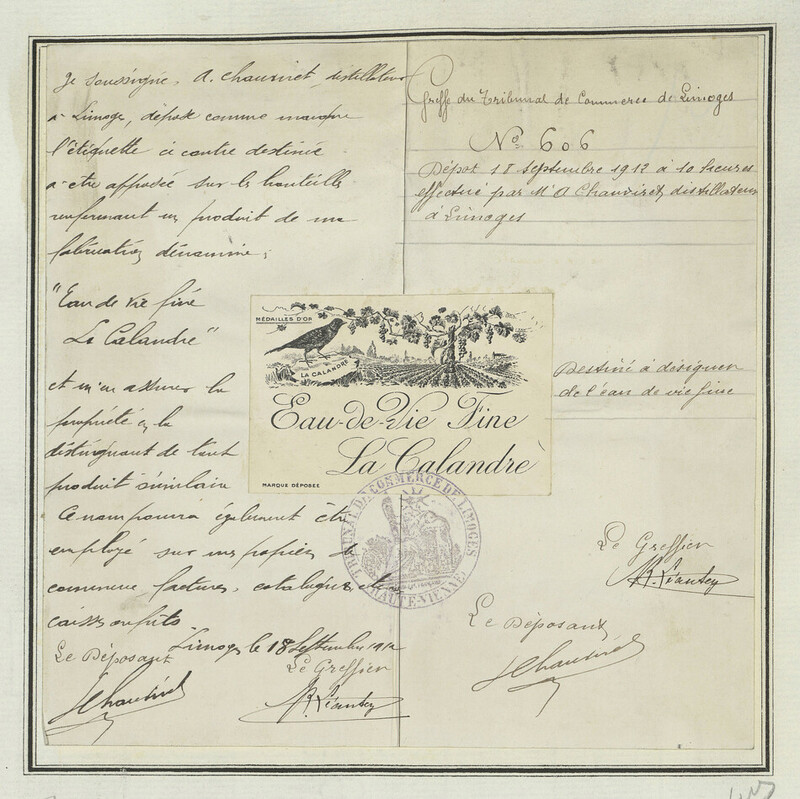 Je soussigné, A. Chauviret, distillateur
a Limoge, dépose comme marque
l'étiquette ci contre destinée
a être apposée sur les bouteilles
renfermant un produit de ma
fabrication dénommée;
"Eau de Vie fine
La Calandre"
et m'en assurer la
propriété en la
distinguant de tout
produit similaire
Ce nom pourra également être
employé sur mes papiers de
commerce factures, catalogues et
caisses ou fûts
Limoges le 18 Septembre 1912
Le Déposant
Chauviret
Le Greffier
Greffe du Tribunal de Commerce de Limoges
No 606
Dépot 18 Septembre 1912 à 10 heures
effectué par Mr A Chauviret distillateur
à Limoges
MÉDAILLES D'OR
LA CALANDRE
Eau-de-Vie Fine
La Calandre
MARQUE DÉPOSÉE
Destiné à désigner
de l'eau de vie fine
TRIBUNAL DE COMMERCE DE LIMOGES
HAUTE-VIENNE
Le Greffier
Le Déposant
Chauviret